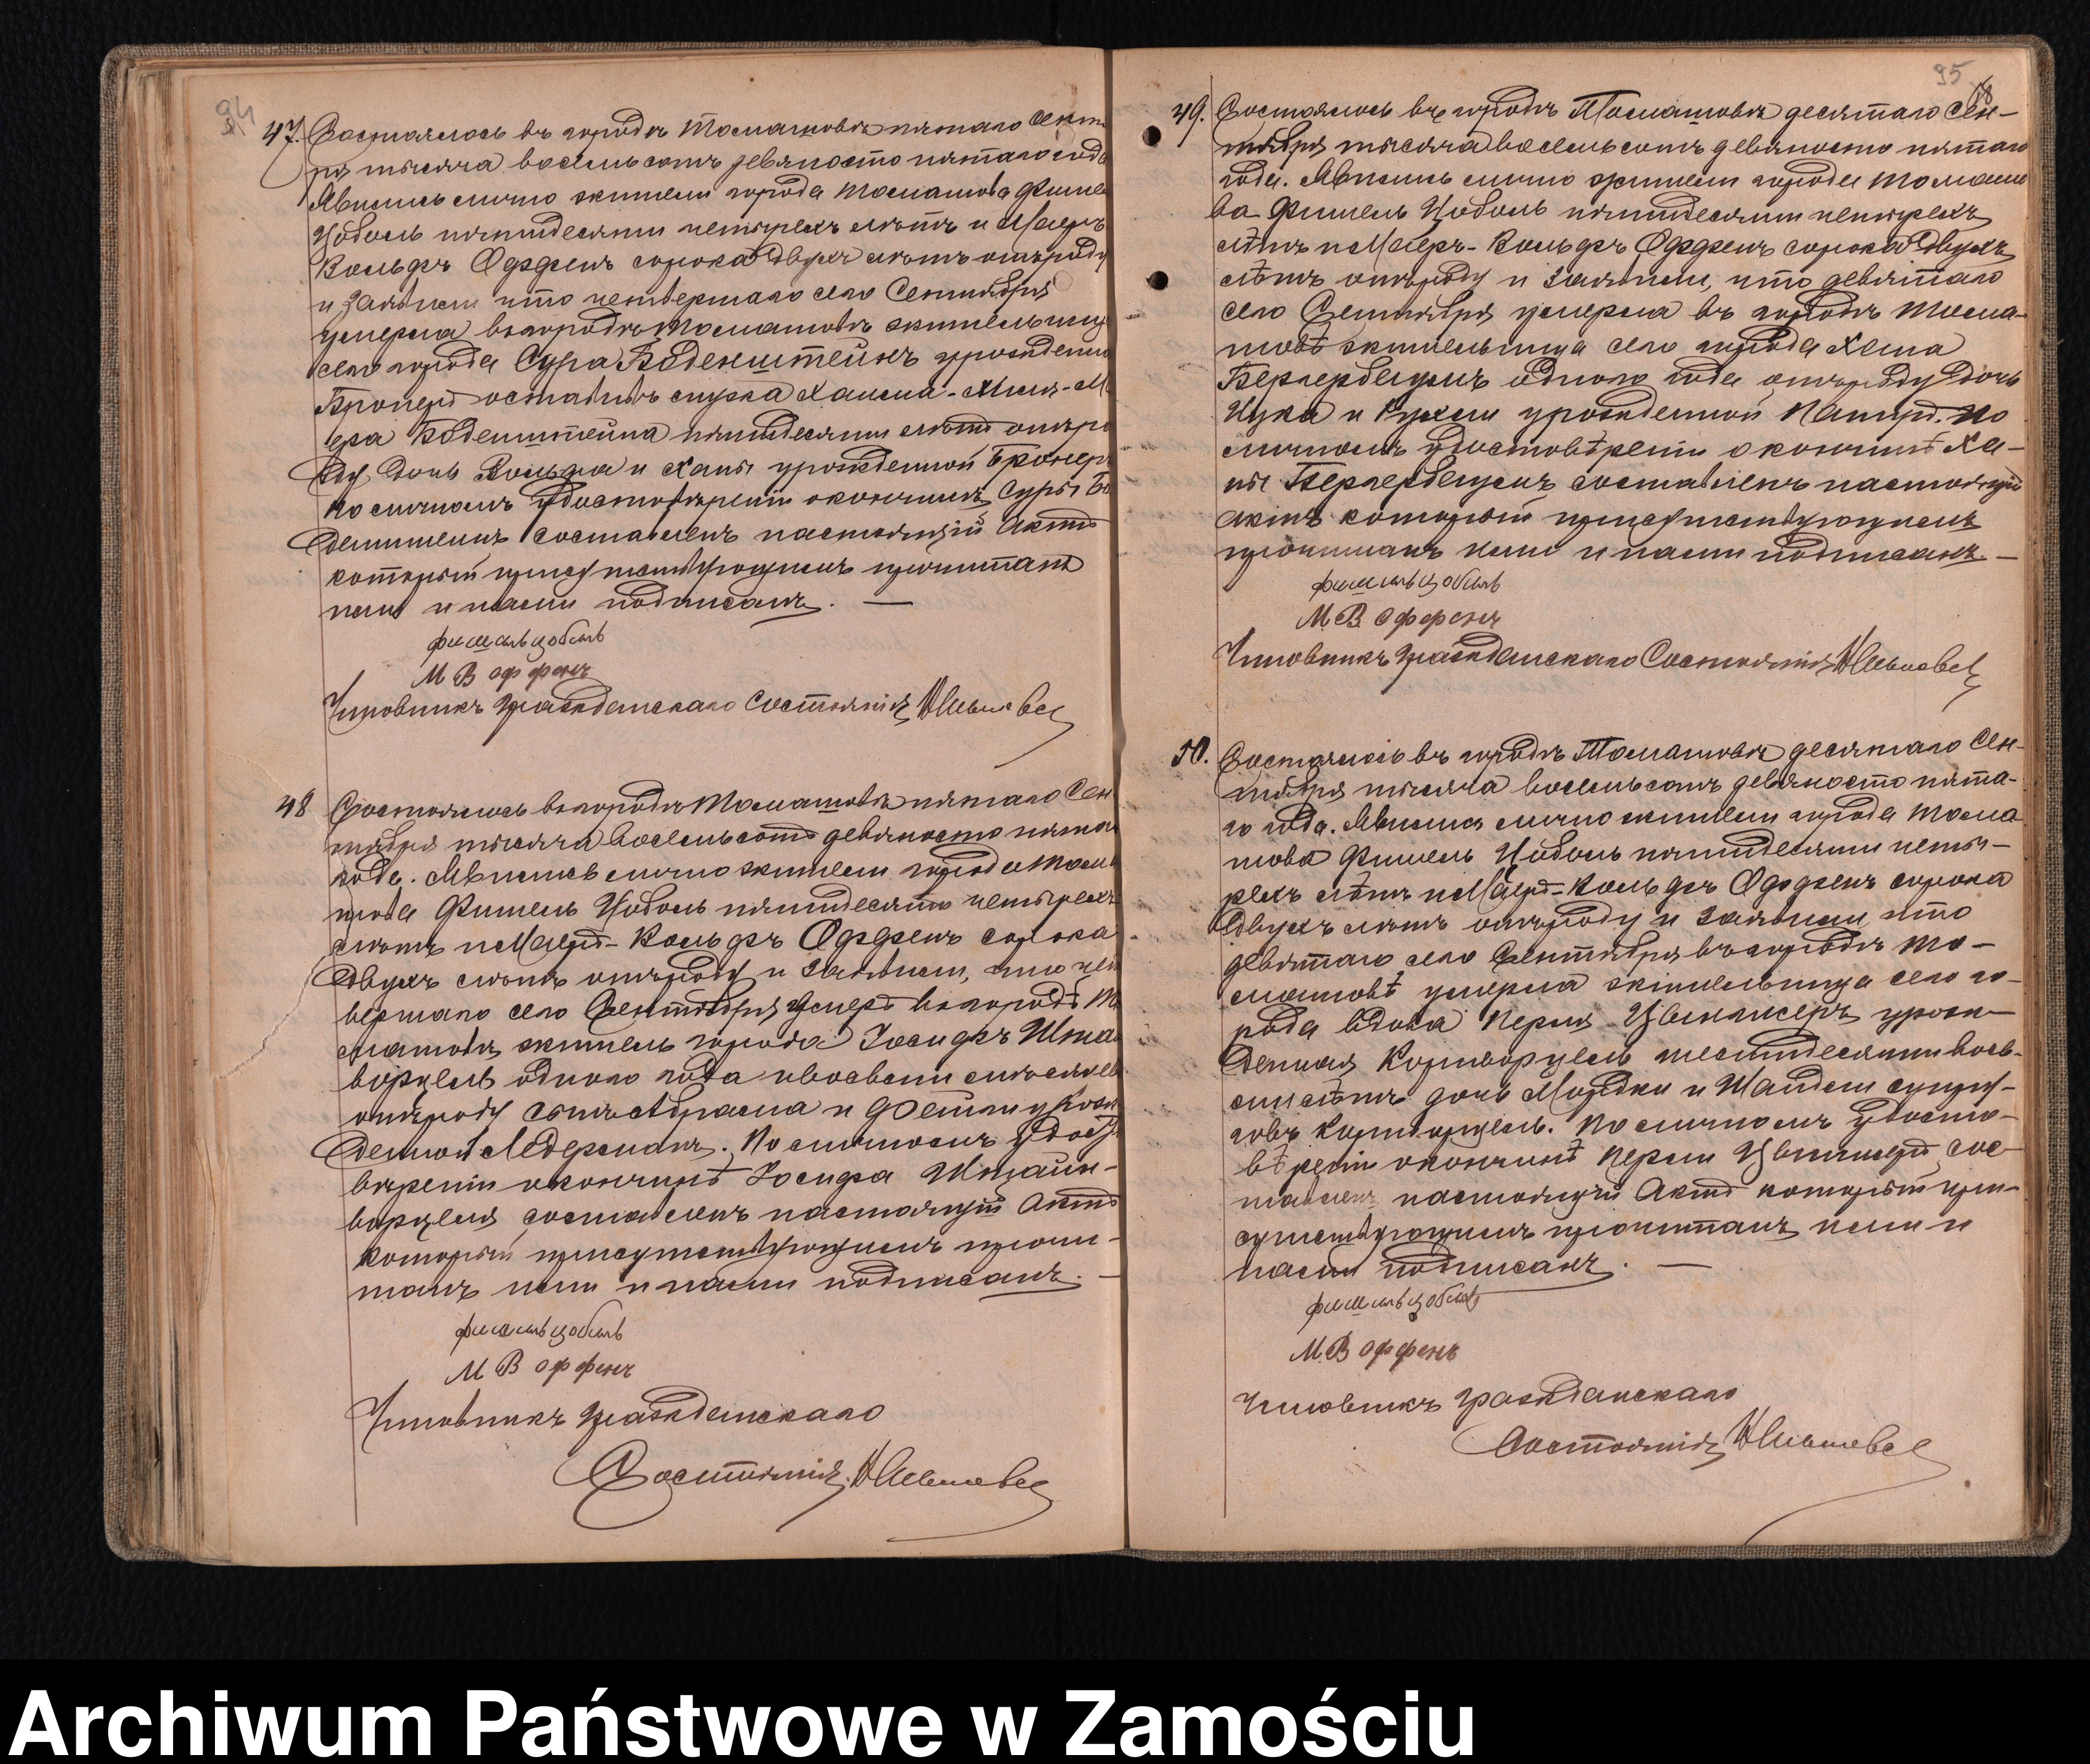 94
47. Состоялось въ городѣ Томашовѣ пятаго Сентя-
ря тысяча восемьсотъ девяносто пятаго года
Явились лично жители города Томашова Фишель
Цоболь пятидесяти четырехъ лѣтъ и Маеръ
Вольфъ Оффенъ сорока двухъ лѣтъ отъ роду
и заявили что четвертаго сего Сентября
умерла въ городѣ Томашовѣ жительница
сего города Сура Боденштейнъ урожденная
Бронеръ оставивъ мужа Хаима-
ера Боденштейна пятидесяти лѣтъ отъ ро
ду дочь Вольфа и Ханы урожденной Бронеръ
По личномъ удостовѣреніи о кончинѣ Суры Бо
денштейнъ составленъ настоящій Актъ
который присутствующимъ прочитанъ
ими и нами подписанъ. —
фишельцобель
М В оффенъ
Чиновникъ Гражданскаго Состоянія
48 Состоялось въ городѣ Томашовѣ пятаго Сен
тября тысяча восемьсотъ девяносто пятаго
года. Явились лично жители города Тома
шова Фишель Цоболь пятидесяти четырехъ
лѣтъ и Маеръ-Вольфъ Оффенъ сорока
двухъ лѣтъ отъ роду и заявили, что чет
вертаго сего Сентября умеръ въ городѣ То
машовѣ житель города Іосифъ Штай
ворцель одного года и восьми мѣсяцевъ
отъ роду сынъ Абрама и Фейги урож
денной Ледерманъ. По личномъ удосто
вѣреніи о кончинѣ Іосифа Штайн-
ворцеля составленъ настоящій Актъ
который присутствующимъ прочи-
танъ ими и нами подписанъ. —
фишельцобель
М В оффенъ
Чиновникъ Гражданскаго
Состоянія
95
49. Состоялось въ городѣ Томашовѣ десятаго Сен-
тября тысяча восемьсотъ девяносто пятаго
года. Явились лично жители города Томашо
ва Фишель Цоболь пятидесяти четырехъ
лѣтъ и Маеръ-Вольфъ Оффенъ сорока двухъ
лѣтъ отъ роду и заявили, что девятаго
сего Сентября умерла въ городѣ Тома-
шовѣ жительница сего города Хана
одного года отъ роду дочь
и урожденной По
личномъ удостовѣреніи о кончинѣ Ха-
ны составленъ настоящій
актъ который присутствующимъ
прочитанъ ими и нами подписанъ. —
фишельцобель
М. В. оффенъ
Чиновникъ Гражданскаго Состоянія
50. Состоялось въ городѣ Томашовѣ десятаго Сен-
тября тысяча восемьсотъ девяносто пята-
го года. Явились лично жители города Тома
шова Фишель Цоболь пятидесяти четы-
рехъ лѣтъ и Маеръ-Вольфъ Оффенъ сорока
двухъ лѣтъ отъ роду и заявили что
девятаго сего Сентября въ городѣ То-
машовѣ умерла жительница сего го-
рода вдова Перля урож-
денная Корнворцель шестидесяти вось-
ми лѣтъ дочь Мордки и супру-
говъ Корнворцель. По личномъ удосто-
вѣреніи о кончинѣ Перли сос-
тавленъ настоящій Актъ который при-
сутствующимъ прочитанъ ими и
нами подписанъ. —
фишельцобель
М. В оффенъ
Чиновникъ гражданскаго
Состоянія
Archiwum Państwowe w Zamościu